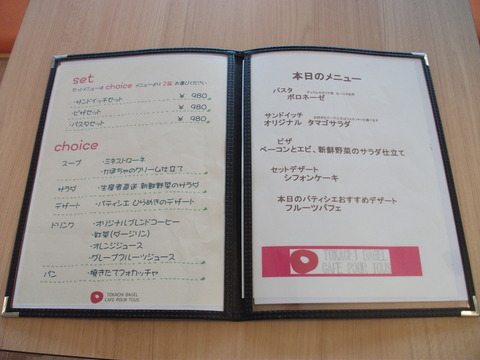 set
セットメニューは choice メニューより 2品 お選びください
・サンドイッチセット ¥ 980
・ピザセット ¥ 980
・パスタセット ¥ 980
choice
スープ ・ミネストローネ
・かぼちゃのクリーム仕立て
サラダ ・生産者直送 新鮮野菜のサラダ
デザート ・パティシエ ひらめきのデザート
ドリンク ・オリジナルブレンドコーヒー
・紅茶(ダージリン)
・オレンジジュース
・グレープフルーツジュース
パン ・焼きたてフォカッチャ
TOKACHI BAGEL
CAFE POUR TOUS
本日のメニュー
パスタ
ボロネーゼ
サンドイッチ
オリジナル タマゴサラダ
ピザ
ベーコンとエビ、新鮮野菜のサラダ仕立て
セットデザート
シフォンケーキ
本日のパティシエおすすめデザート
フルーツパフェ
TOKACHI BAGEL
CAFE POUR TOUS